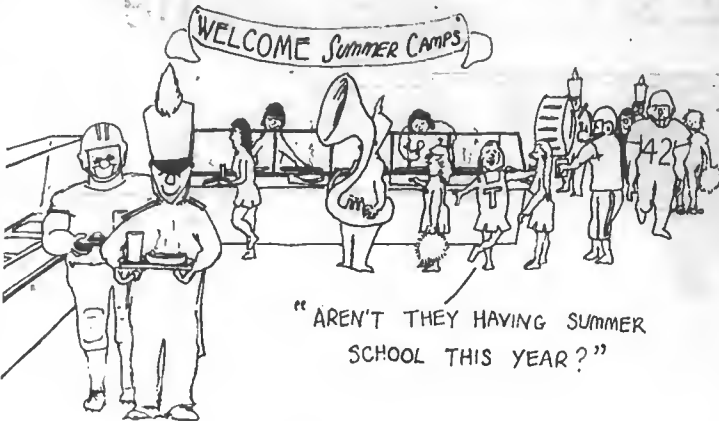 WELCOME SUMMER CAMPS
T
42
"AREN'T THEY HAVING SUMMER
SCHOOL THIS YEAR?"